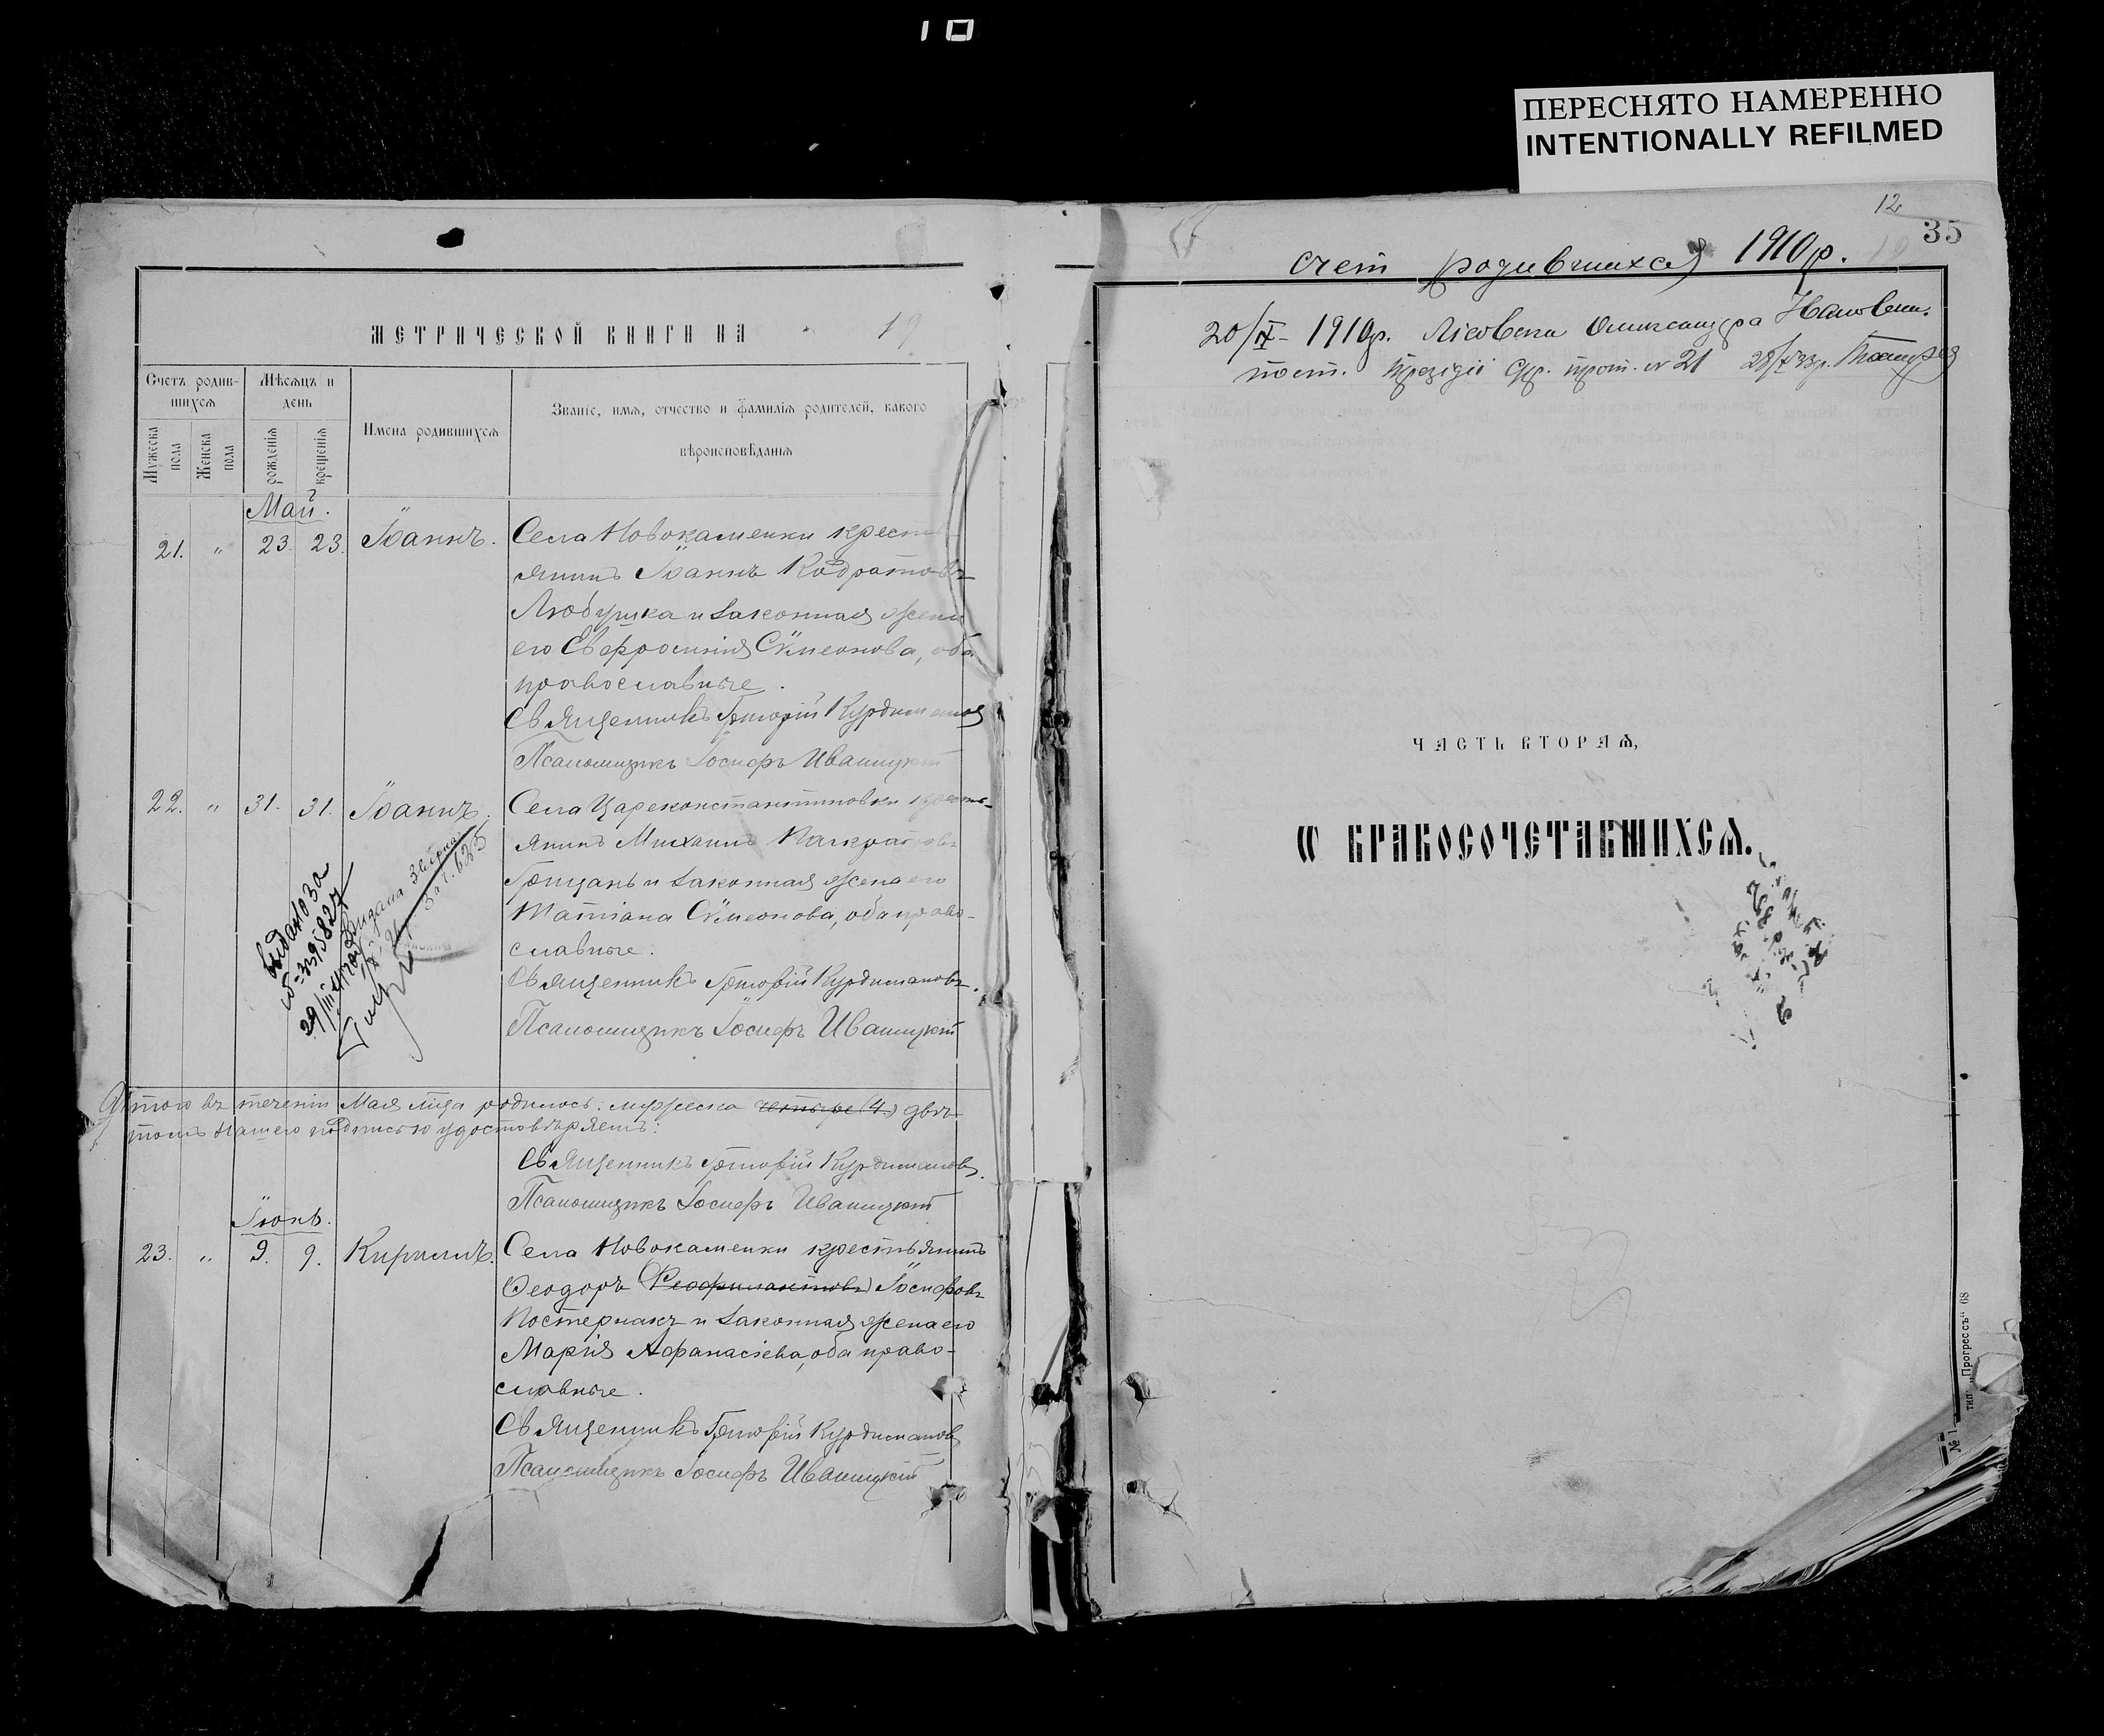 10
ПЕРЕСНЯТО НАМЕРЕННО
INTENTIONALLY REFILMED
МЕТРИЧЕСКОЙ КНИГИ НА 19
Счетъ родив-
шихся
Мѣсяцъ и
день
Мужеска
пола
Женска
пола
рожденія
крещенія
Имена родившихся
Званіе, имя, отчество и фамилія родителей, какого
вѣроисповѣданія
Май.
21. " 23. 23. Іоаннъ. Села Новокаменки крестъ
янинъ Іоаннъ Кодратовъ
Любушка и законная жена
его Евфросинія Сѵмеонова, оба
православные.
Священникъ Григорій Курдиманов
Псаломщикъ Іосифъ Иваницкій
22. " 31. 31. Іоаннъ. Села Цареконстантиновки кресть-
янинъ Михаилъ Панкратовъ
Грицанъ и законная жена его
Татіана Сѵмеонова, оба право-
славные.
Священникъ Григорій Курдимановъ.
Псаломщикъ Іосифъ Иваницкій
Выдано за
395827
Итого въ теченіи Мая м-ца родилось: мужеска четыре (4.) двѣ
томъ нашею подписью удостовѣряемъ:
Священникъ Григорій Курдимановъ.
Псаломщикъ Іосифъ Иваницкій
Іюнь.
23. " 9. 9. Кириллъ. Села Новокаменки крестьянинъ
Ѳеодоръ (Ѳеофилактовъ) Іосифовъ
Постернакъ и законная жена его
Марія Афанасіева, оба право-
славные.
Священникъ Григорій Курдиманов
Псаломщикъ Іосифъ Иваницкій
12
35
счет родившихся 1910р.
20/IX- 1910р. Лісовска Олександра
пост. Президії прот. № 21
ЧАСТЬ ВТОРАЯ,
Ѡ БРАКОСОЧЕТАВШИХСЯ.
№ 1. тип. „Прогрессъ“ 68